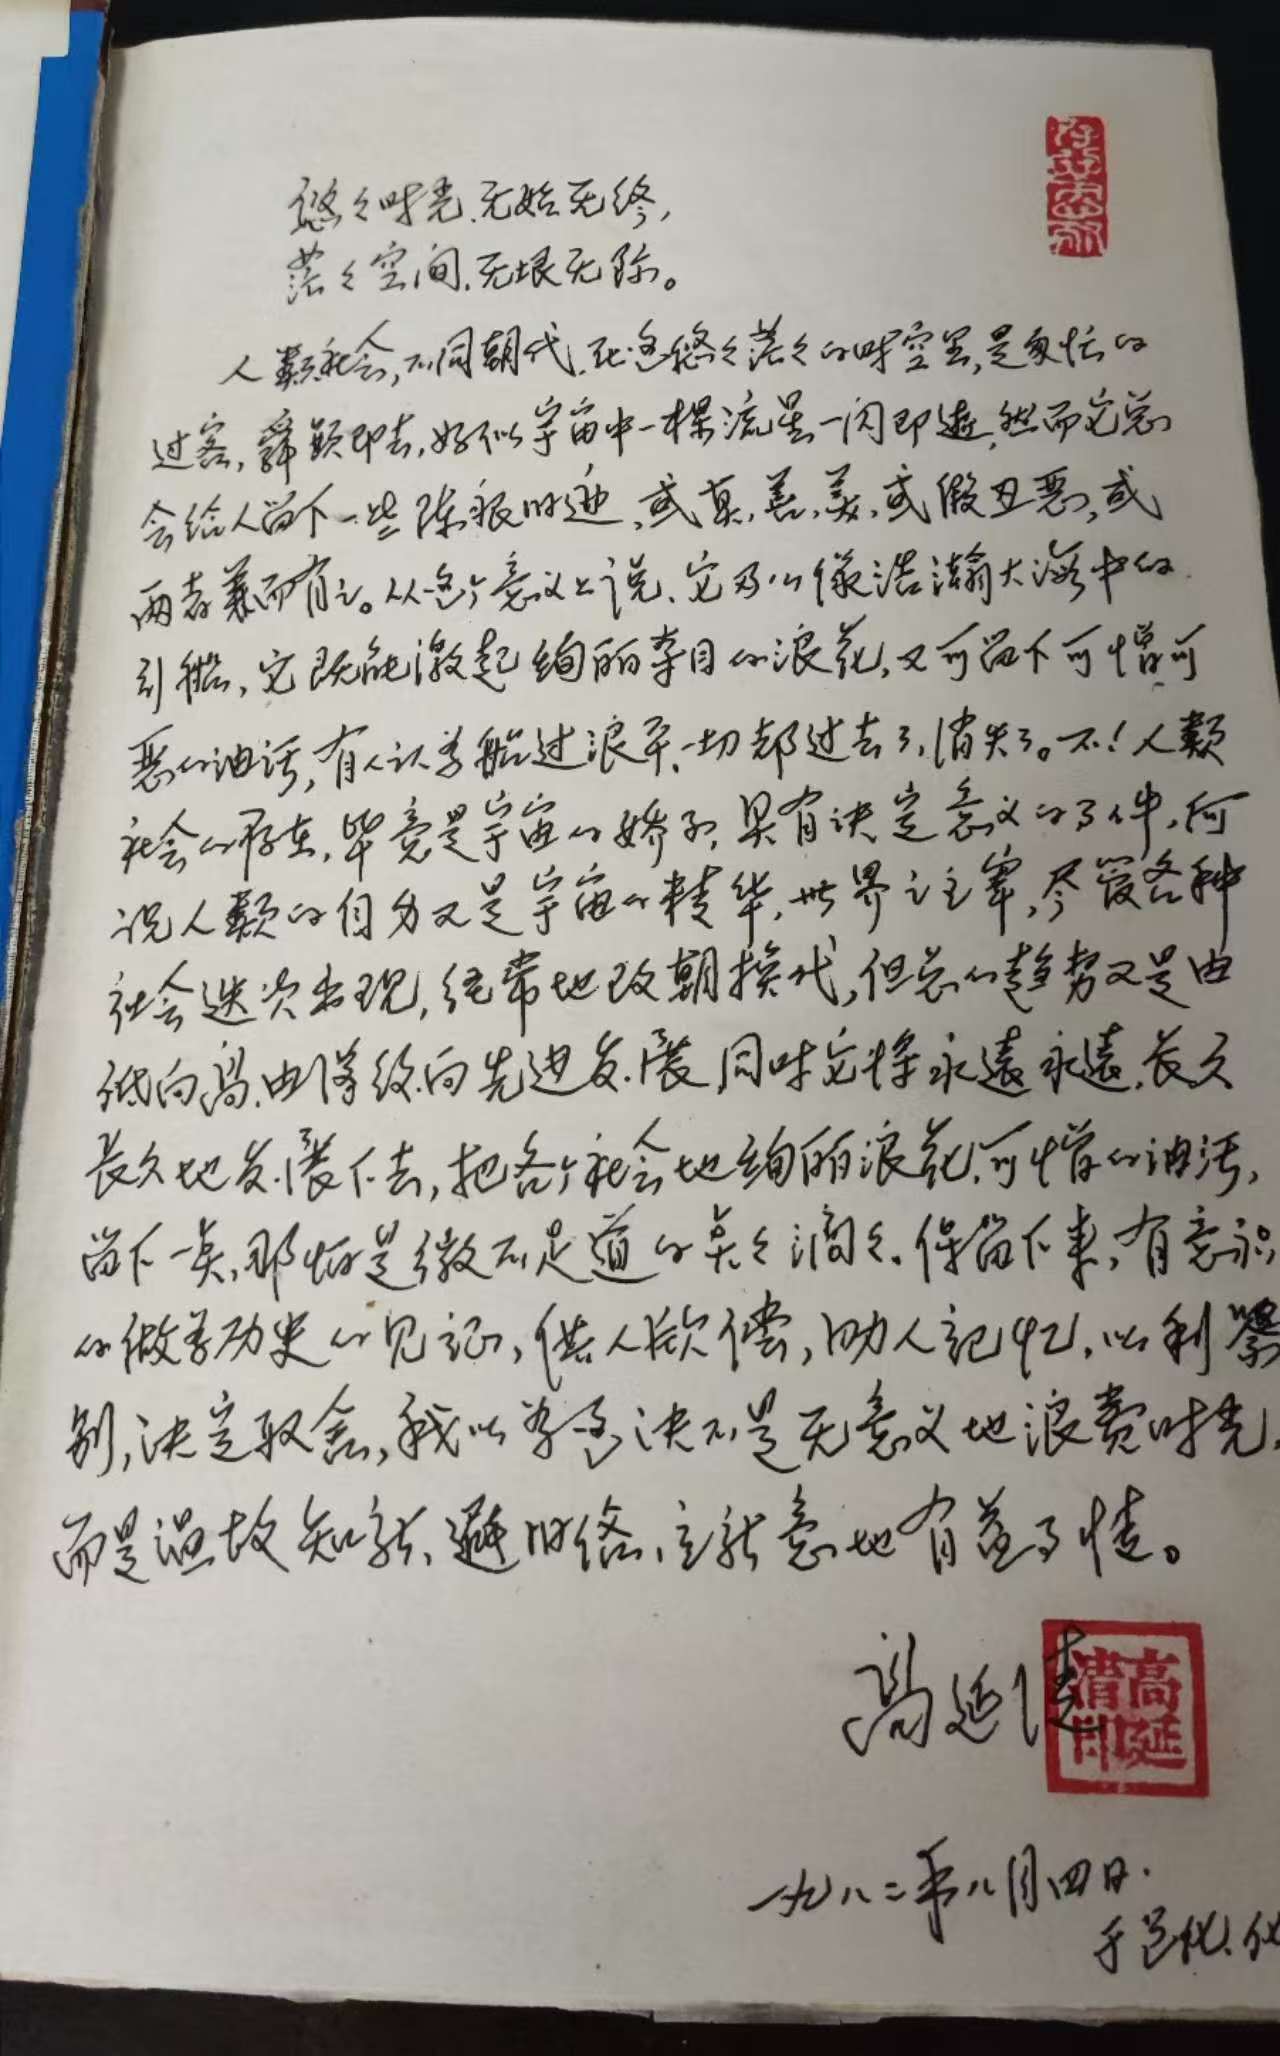 悠々时光、无始无终，
茫々空间、无垠无际。
人类社会，不同朝代、在这悠々茫々的时空里，是匆忙的
过客，瞬颗即去，好似宇宙中一棵流星一闪即逝，然而它总
会给人留下一些陈痕旧迹，或真、善、美，或假丑恶，或
两者兼而有之。从这个意义上说、它又像浩瀚大海中的
引船，它既能激起绚丽夺目的浪花，又可留下可憎可
恶的油污，有人认为船过浪平、一切都过去了，消失了。不！人类
社会的存在，毕竟是宇宙的娇子，具有决定意义的事件，何
况人类的自身又是宇宙的精华，世界之主宰，尽管各种
社会迭次出现，经常地改朝换代，但总的趋势又是由
低向高、由落后向先进发展，同时它将永远永远、长久
长久地发展下去，把各个社会地绚丽浪花、可憎的油污，
留下一点，那怕是微不足道的点々滴々、保留下来，有意识
的做为历史的见证，供人欣偿，助人记忆，以利鉴
别，决定取舍，我以为这决不是无意义地浪费时光，
而是温故知新、避旧俗、立新意地有益事情。
高延清
高延
清印
一九八二年八月四日.
于